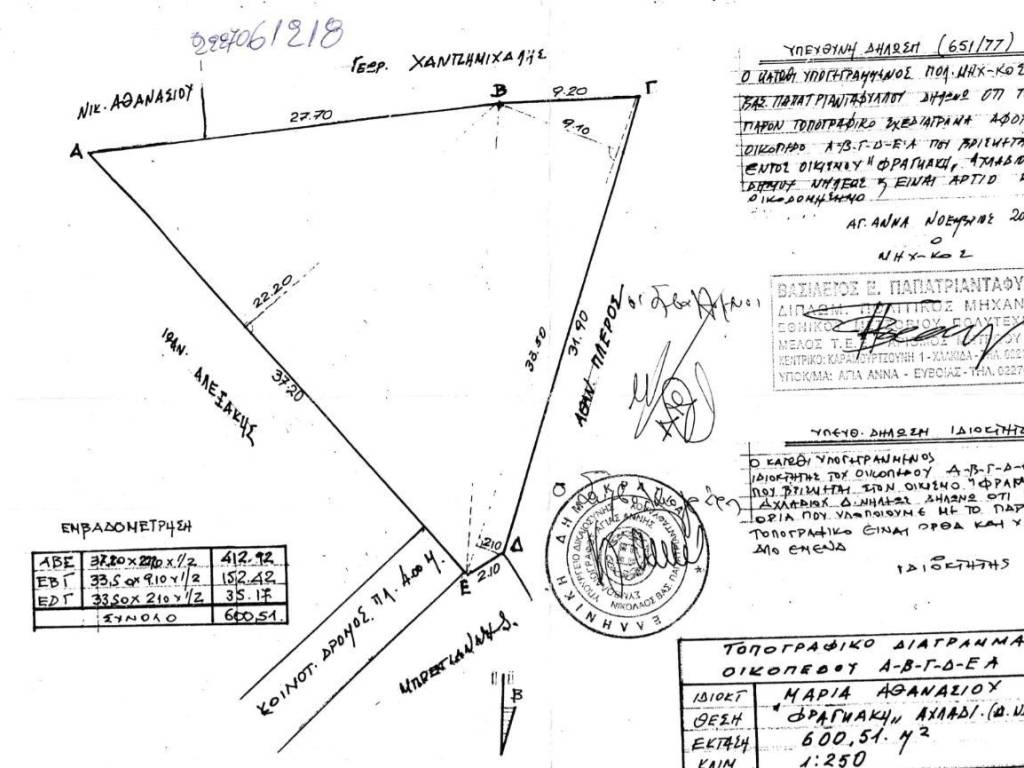 2227061218
ΓΕΩΡ. ΧΑΝΤΖΗΜΙΧΑΛΗΣ
ΝΙΚ. ΑΘΑΝΑΣΙΟΥ
Α
27.70
Β
9.20
Γ
9.10
22.20
37.20
ΑΛΕΞΑΚΗΣ
33.50
31.90
ΑΘΑΝ. ΠΛΕΡΟΣ
2.10
Δ
2.10
Ε
ΚΟΙΝΟΤ. ΔΡΟΜΟΣ ΠΛ. 4.00 Μ.
Β
ΕΜΒΑΔΟΜΕΤΡΗΣΗ
ΑΒΕ 37.20 x 22.20 x 1/2 412.92
ΕΒΓ 33,50 x 9.10 x 1/2 152.42
ΕΔΓ 33.50 x 2.10 x 1/2 35.17
ΣΥΝΟΛΟ 600,51.
ΥΠΕΥΘΥΝΗ ΔΗΛΩΣΗ (651/77)
Ο ΚΑΤΩΘΙ ΥΠΟΓΕΓΡΑΜΜΕΝΟΣ ΠΟΛ. ΜΗΧ-ΚΟΣ
ΒΑΣ. ΠΑΠΑΤΡΙΑΝΤΑΦΥΛΛΟΥ ΔΗΛΩΝΩ ΟΤΙ Τ
ΠΑΡΟΝ ΤΟΠΟΓΡΑΦΙΚΟ ΣΧΕΔΙΑΓΡΑΜΑ ΑΦΟ
ΟΙΚΟΠΕΔΟ Α-Β-Γ-Δ-Ε-Α ΠΟΥ ΒΡΙΣΚΕΤΑΙ
ΕΝΤΟΣ ΟΙΚΙΣΜΟΥ "ΦΡΑΓΚΑΚΗ" ΑΧΛΑΔ
ΔΗΜΟΥ ΝΗΛΕΩΣ ΕΙΝΑΙ ΑΡΤΙΟ
ΟΙΚΟΔΟΜΗΣΙΜΟ
ΑΓ. ΑΝΝΑ ΝΟΕΜΒΡΙΟΣ 20
Ο
ΜΗΧ-ΚΟΣ
ΒΑΣΙΛΕΙΟΣ Ε. ΠΑΠΑΤΡΙΑΝΤΑΦΥ
ΔΙΠΛΩΜ. ΠΟΛΙΤΙΚΟΣ ΜΗΧΑΝ
ΕΘΝΙΚΟΥ ΜΕΤΣΟΒΙΟΥ ΠΟΛΥΤΕΧ
ΜΕΛΟΣ Τ.Ε.
ΚΕΝΤΡΙΚΟ: ΚΑΡΑΜΟΥΡΤΖΟΥΝΗ 1 - ΧΑΛΚΙΔΑ - ΤΗΛ. 022
ΥΠΟΚ/ΜΑ: ΑΓΙΑ ΑΝΝΑ - ΕΥΒΟΙΑΣ - ΤΗΛ. 0227
ΥΠΕΥΘ. ΔΗΛΩΣΗ ΙΔΙΟΚΤΗΤ
Ο ΚΑΤΩΘΙ ΥΠΟΓΕΓΡΑΜΜΕΝΟΣ
ΙΔΙΟΚΤΗΤΗΣ ΤΟΥ ΟΙΚΟΠΕΔΟΥ Α-Β-Γ-Δ-
ΠΟΥ ΒΡΙΣΚΕΤΑΙ ΣΤΟΝ ΟΙΚΙΣΜΟ "ΦΡΑΓ
ΑΧΛΑΔΙΟΥ Δ. ΝΗΛΕΩΣ ΔΗΛΩΝΩ ΟΤΙ
ΟΡΙΑ ΠΟΥ ΥΠΟΔΕΙΞΑ ΜΕ ΤΟ ΠΑΡ
ΤΟΠΟΓΡΑΦΙΚΟ ΕΙΝΑΙ ΟΡΘΑ ΚΑΙ
ΑΠΟ ΕΜΕΝΑ
ΙΔΙΟΚΤΗΤΗΣ
ΕΛΛΗΝΙΚΗ ΔΗΜΟΚΡΑΤΙΑ
ΤΟΠΟΓΡΑΦΙΚΟ ΔΙΑΓΡΑΜΜΑ
ΟΙΚΟΠΕΔΟΥ Α-Β-Γ-Δ-Ε Α
ΙΔΙΟΚΤ ΜΑΡΙΑ ΑΘΑΝΑΣΙΟΥ
ΘΕΣΗ "ΦΡΑΓΚΑΚΗ" ΑΧΛΑΔΙ. (Δ.
ΕΚΤΑΣΗ 600,51. Μ²
ΚΛΙΜ 1:250